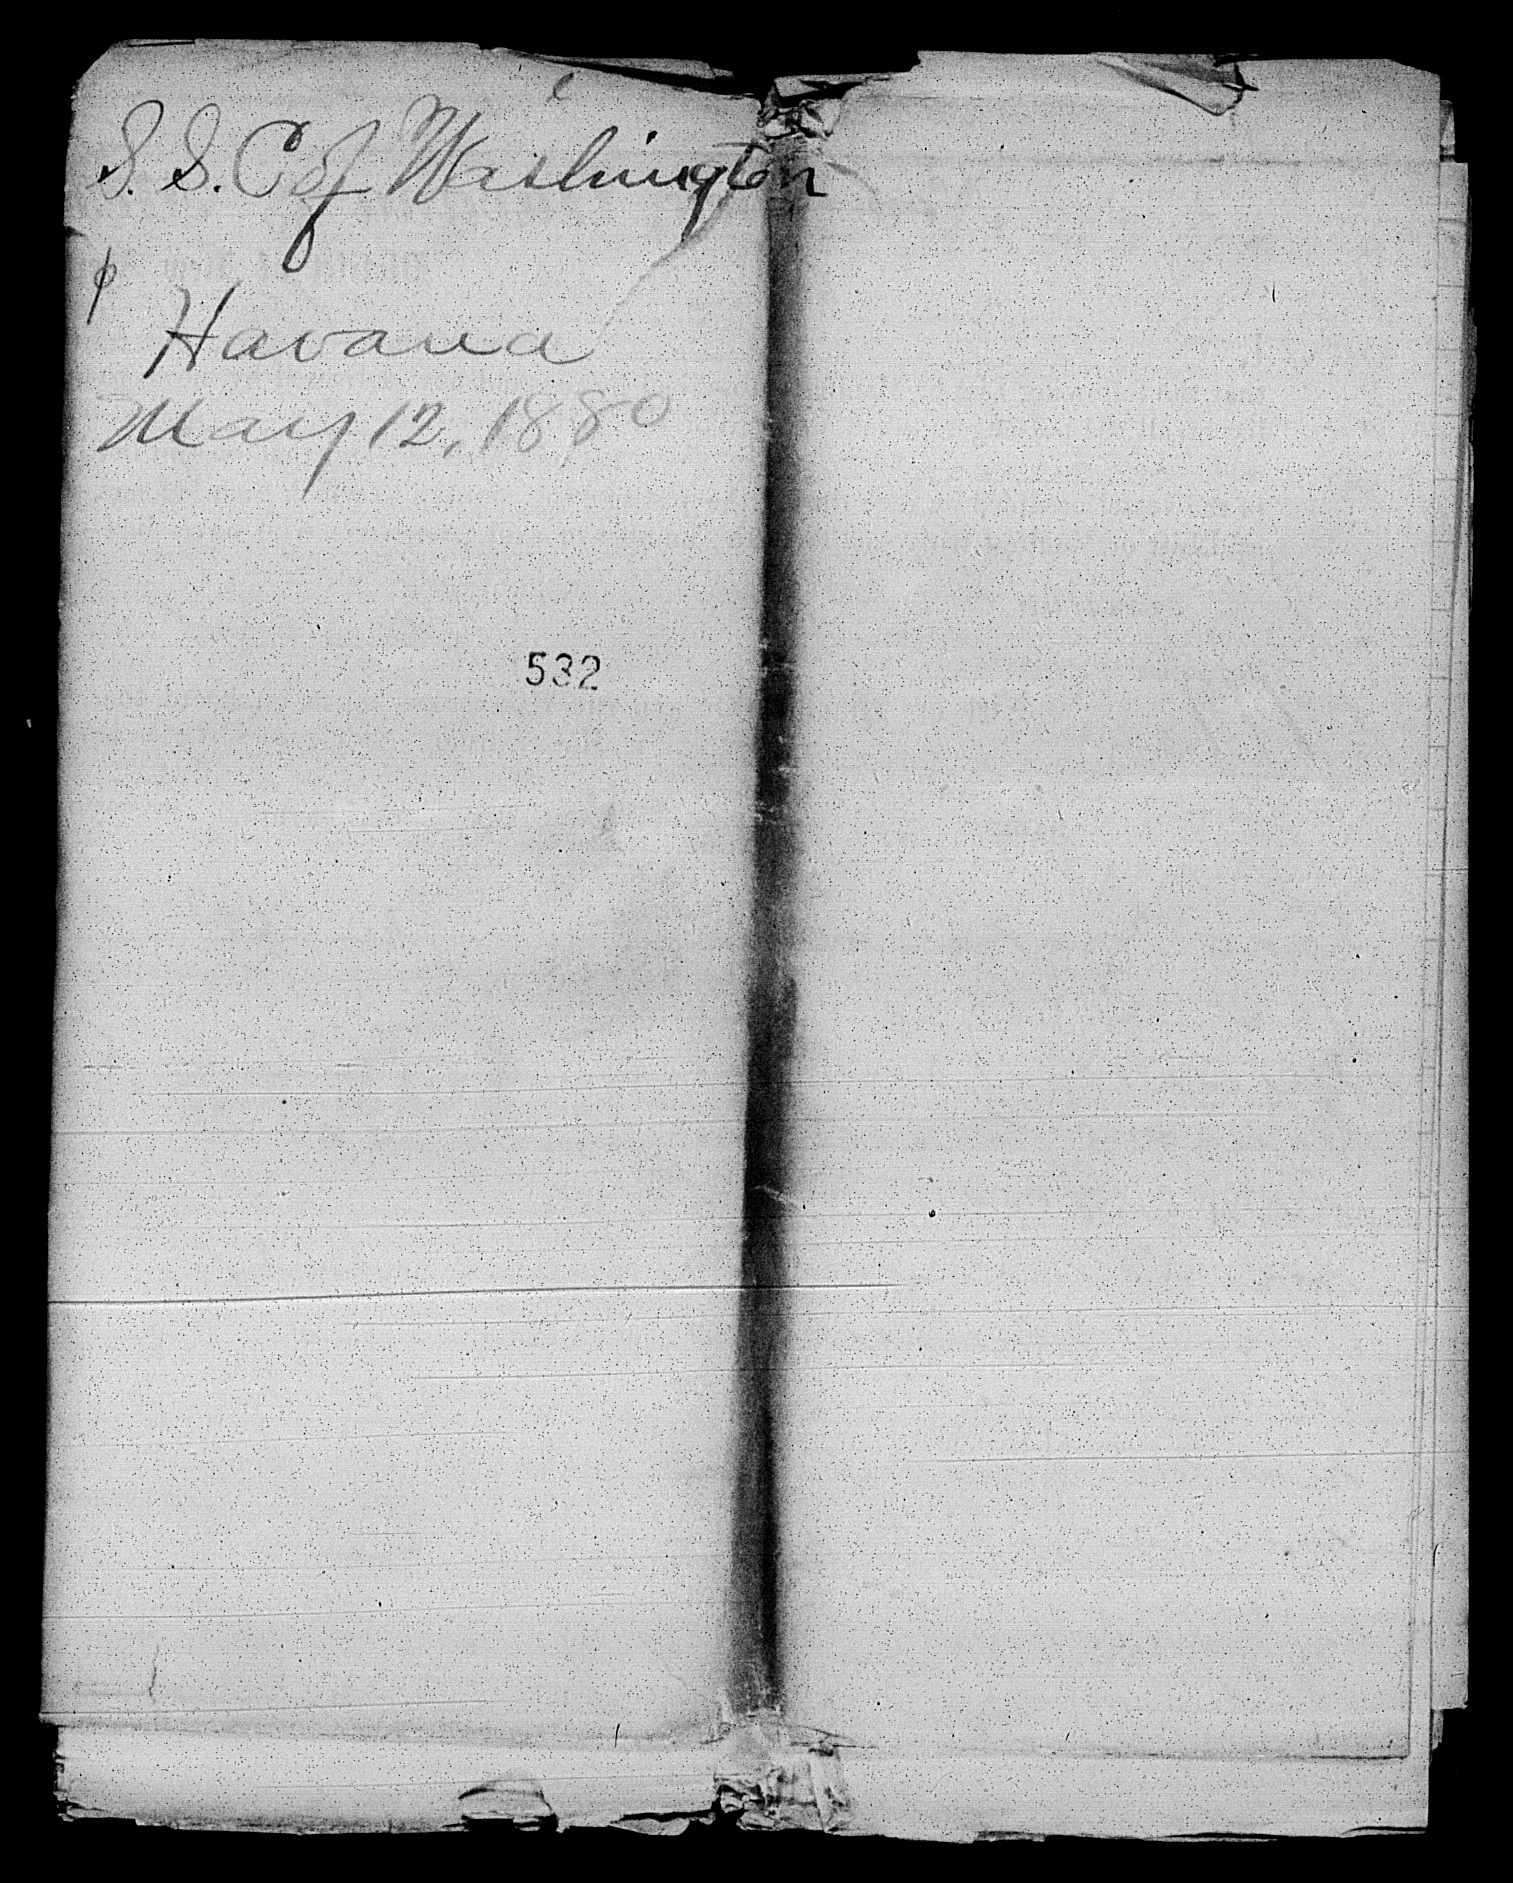 S. S. C of Washington
Havana
May 12, 1880
532